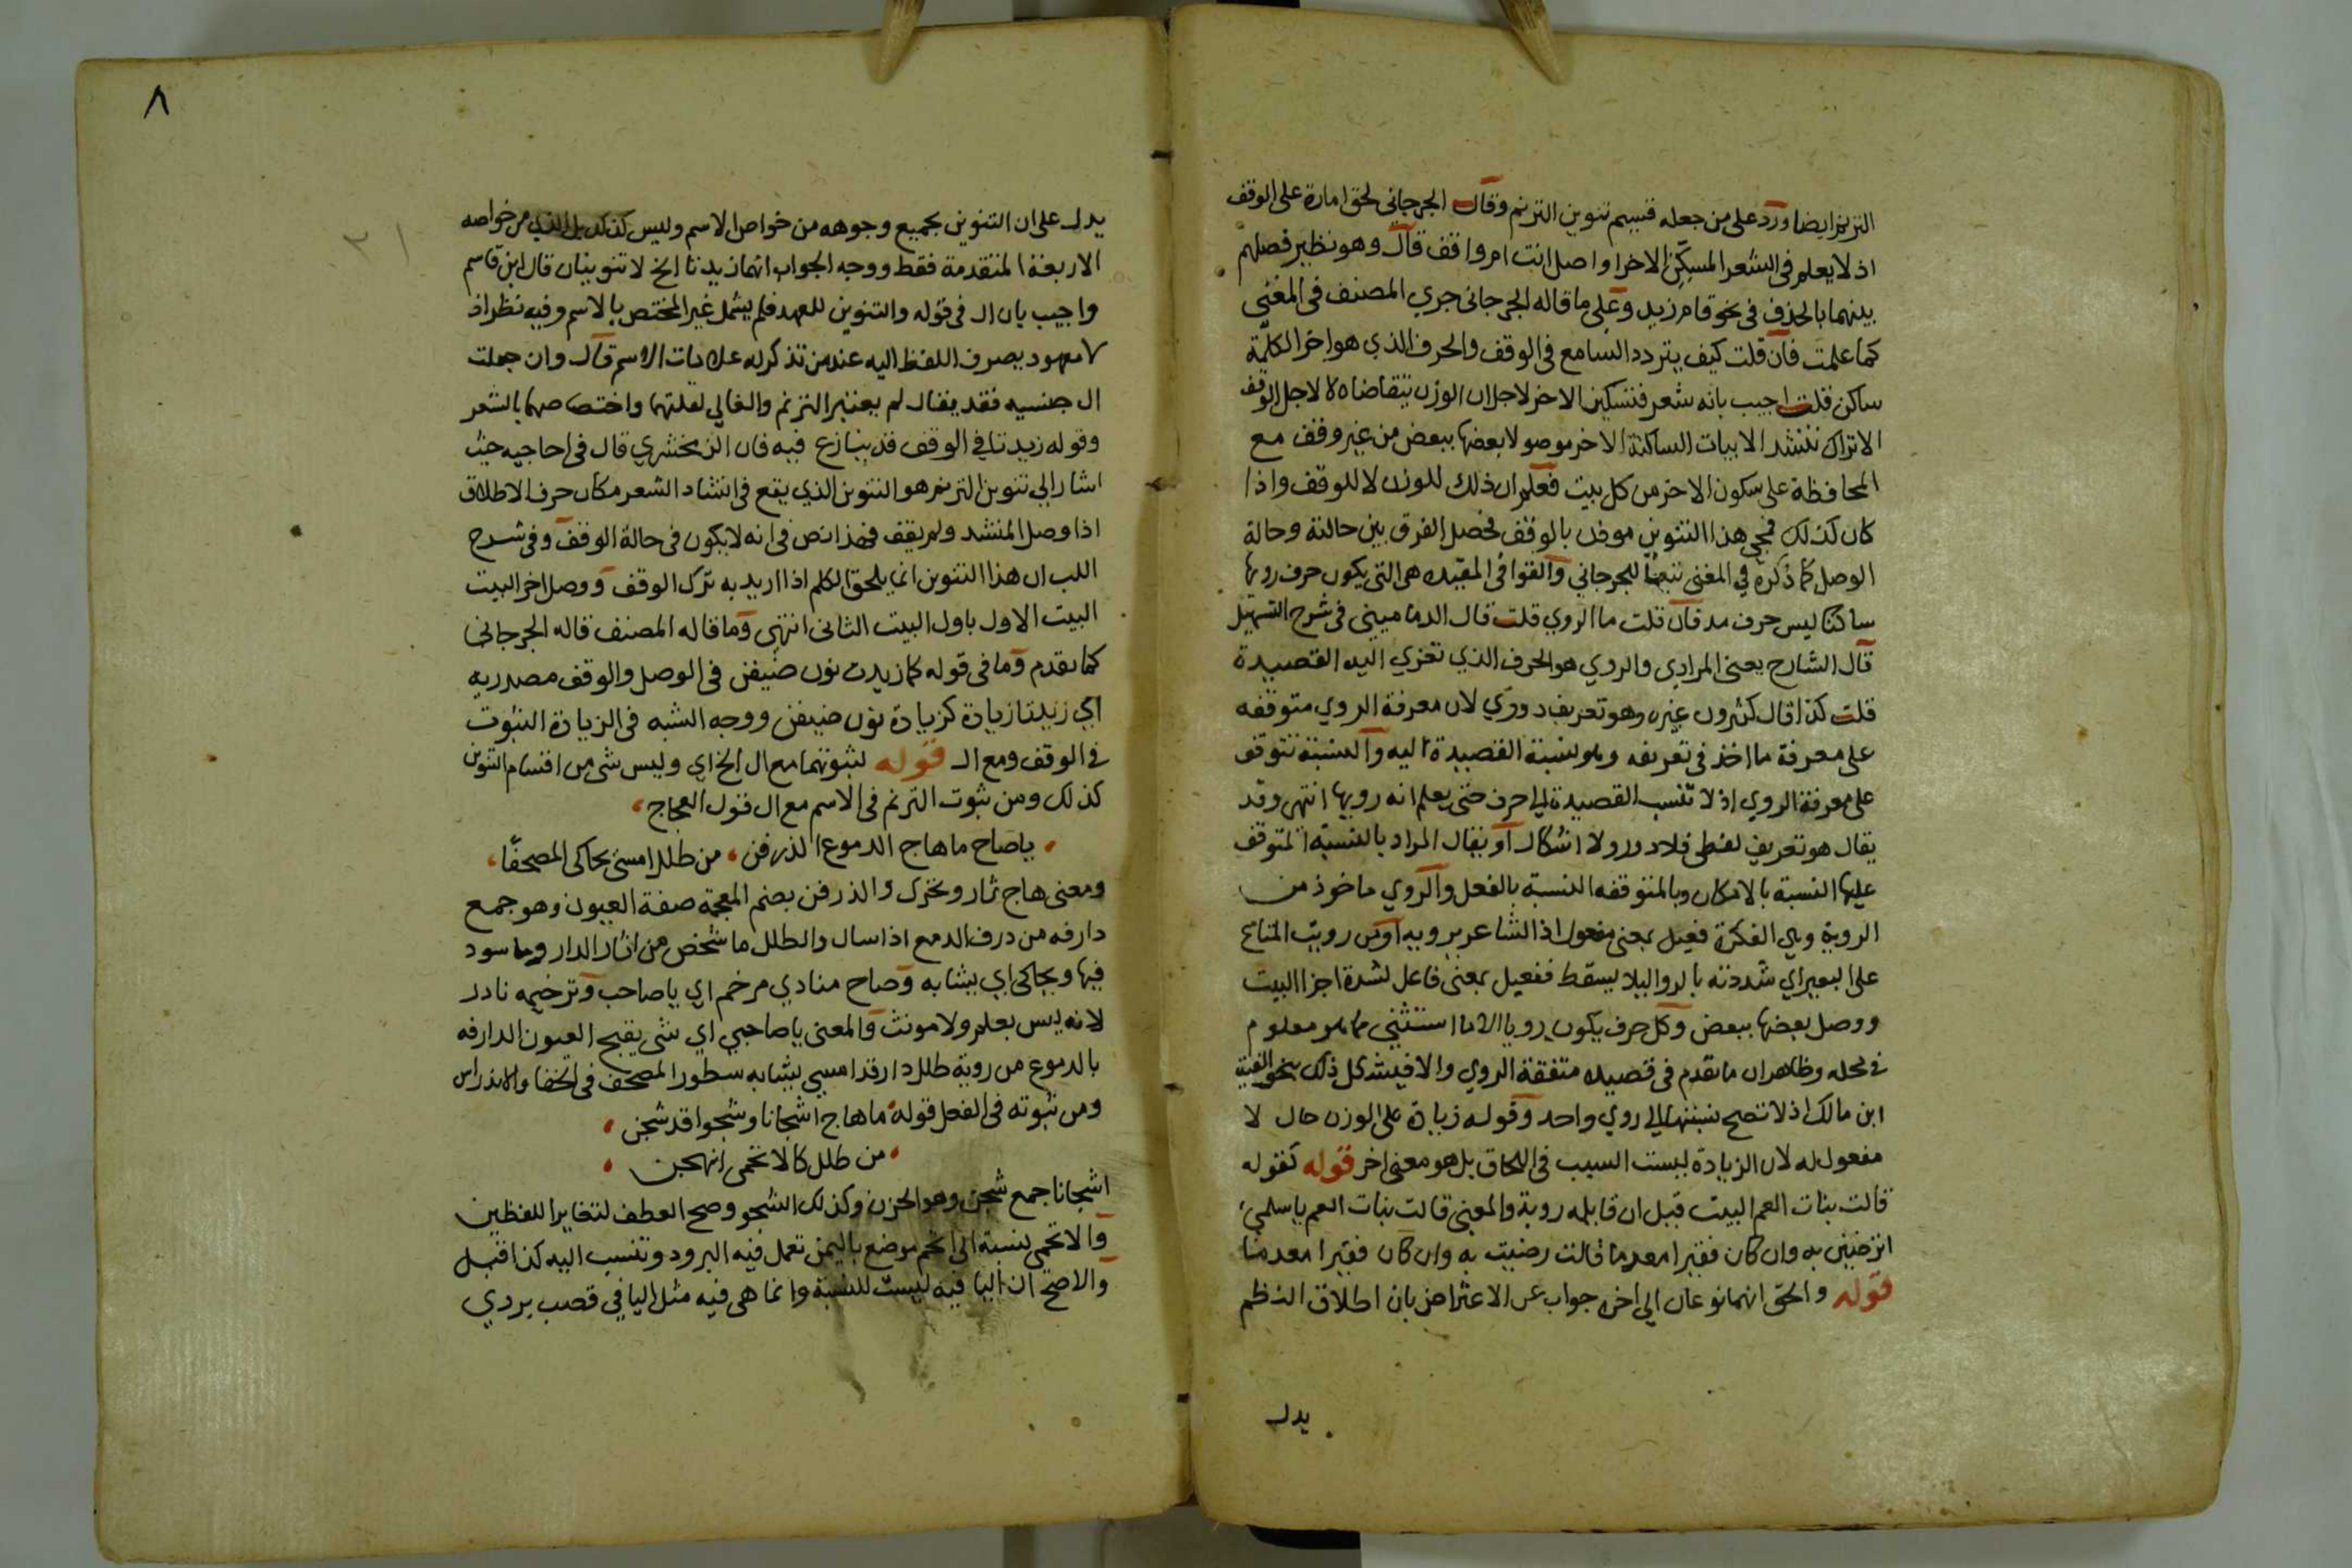 الترنم ايضا ورد على من جعله قسيم تنوين الترنم وقال الجرجانى لحق امارة على الوقف
اذ لا يعلم فى الشعر المسكن الاخر اواصل انت ام واقف قال وهو نظير فصلهم
بينهما بالحذف فى نحو قام زيد وعلى ما قاله الجرجانى جري المصنف فى المغنى
كما علمت فان قلت كيف يتردد السامع فى الوقف والحرف الذي هو اخر الكلمة
ساكن قلت اجيب بانه شعر فتسكين الاخر لاجل ان الوزن يتقاضاه لا لاجل الوقف
الا تراك تنشد الابيات الساكنة الاخر موصولا بعضها ببعض من غير وقف مع
المحافظة على سكون الاخر من كل بيت فعلم ان ذلك للوزن لا للوقف واذا
كان كذلك فمجي هذا التنوين موذن بالوقف فحصل الفرق بين حالته وحالة
الوصل كما ذكره في المغنى تبعا للجرجاني والقوافى المقيده هى التى يكون حرف رويها
ساكنا ليس حرف مد فان قلت ما الروي قلت قال الدمامينى فى شرح التسهيل
قال الشارح يعنى المرادى والروي هو الحرف الذي تعزي اليه القصيدة
قلت كذا قال كثيرون غيره وهو تعريف دوري لان معرفة الروي متوقفه
على معرفة ما اخذ فى تعريفه وهو نسبة القصيدة اليه والنسبة تتوقف
على معرفة الروي اذ لا تنسب القصيدة الى حرف حتى يعلم انه رويها انتهى وقد
يقال هو تعريف لفظى فلا دور ولا اشكال او يقال المراد بالنسبة المتوقف
عليها النسبة بالامكان وبالمتوقفه النسبة بالفعل والروي ماخوذ من
الروية وهى الفكرة فعيل بمعنى مفعول اذ الشاعر يرويه او من رويت المتاع
على البعير اي شددته بالروا ليلا يسقط ففعيل بمعنى فاعل لشدة اجزا البيت
ووصل بعضها ببعض وكل حرف يكون رويا الا ما استثنى مما هو معلوم
في محله وظاهر ان ما تقدم فى قصيده متفقة الروي والا فيشكل ذلك بنحو الفية
ابن مالك اذ لا تصح نسبتها الى روي واحد وقوله زيادة على الوزن حال لا
مفعول له لان الزيادة ليست السبب فى اللحاق بل هو معنى اخر قوله كقوله
قالت بنات العم البيت قيل ان قايله روبة والمعنى قالت بنات العم يا سلمى
اترضين به وان كان فقيرا معدما قالت رضيت به وان كان فقيرا معدما
قوله والحق انهما نوعان الى اخره جواب عن الاعتراض بان اطلاق النظم
يدل
٨
يدل على ان التنوين بجميع وجوهه من خواص الاسم وليس كذلك بل الذي من خواصه
الاربعة المتقدمة فقط ووجه الجواب انهما زيدتا الخ لا تنوينان قال ابن قاسم
واجيب بان ال فى قوله والتنوين للعهد فلم يشمل غير المختص بالاسم وفيه نظر اذ
لا معهود يصرف اللفظ اليه عند من تذكر له علامات الاسم قال وان جعلت
ال جنسيه فقد يقال لم يعتبر الترنم والغالي لقلتهما واختصاصهما بالشعر
وقوله زيدتا في الوقف قد ينازع فيه فان الزمخشري قال فى احاجيه حيث
اشار الي تنوين الترنم هو التنوين الذي يقع فى انشاد الشعر مكان حرف الاطلاق
اذا وصل المنشد ولم يقف فهذا نص فى انه لا يكون فى حالة الوقف وفى شرح
اللب ان هذا التنوين انما يلحق الكلم اذا اريد به ترك الوقف ووصل اخر البيت
البيت الاول باول البيت الثانى انتهى وما قاله المصنف قاله الجرجانى
كما تقدم وما فى قوله كما زيدت نون ضيفن فى الوصل والوقف مصدريه
اي زيدتا زيادة كزيادة نون ضيفن ووجه الشبه فى الزيادة الثبوت
في الوقف ومع ال قوله لثبوتهما مع ال الخ اي وليس شى من اقسام التنوين
كذلك ومن ثبوت الترنم فى الاسم مع ال قول العجاج
يا صاح ما هاج الدموع الذرفن من طلل امسى يحاكى المصحفا
ومعنى هاج ثار وتحرك والذرفن بضم المعجمة صفة العيون وهو جمع
دارفه من درف الدمع اذا سال والطلل ما شخص من اثار الدار وما سود
فيها ويحاكى اي يشابه وصاح منادي مرخم اي يا صاحب وترخيمه نادر
لانه ليس بعلم ولا مونث والمعنى يا صاحبي اي شى يقبح العيون الدارفه
بالدموع من روية طلل دار قد امسي يشابه سطور المصحف فى الخفا والاندراس
ومن ثبوته فى الفعل قوله ما هاج اشجانا وشجوا قد شجن
من طلل كالاتحمى انهجن
اشجانا جمع شجن وهو الحزن وكذلك الشجو وصح العطف لتغاير اللفظين
والاتحمى نسبة الى اتحم موضع باليمن تعمل فيه البرود وتنسب اليه كذا قيل
والاصح ان اليا فيه ليست للنسبة وانما هى فيه مثل اليا في قصب بردي